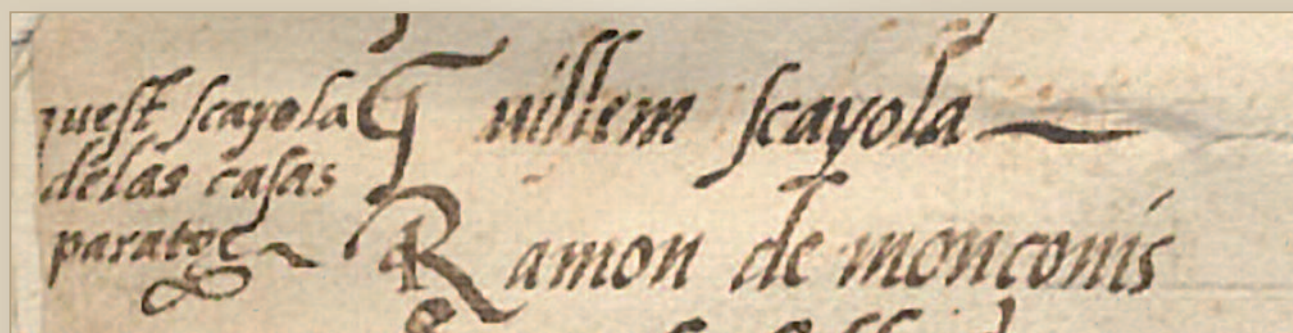 quest scayola
delas casas
paratge
Guillem scayola
Ramon de monconis